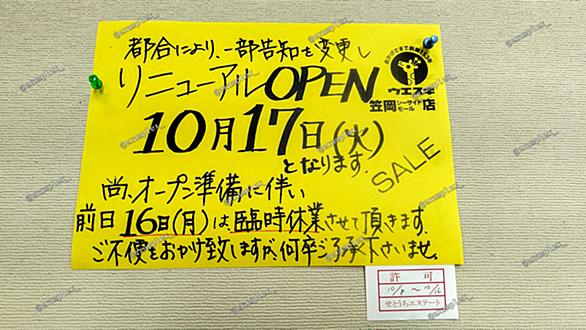 都合により、一部告知を変更し
リニューアルOPEN
10月17日(火)
となります。
ウエスギ
笠岡シーサイドモール店
SALE
尚、オープン準備に伴い
前日16日(月)は臨時休業させて頂きます。
ご不便をおかけ致しますが、何卒ご了承下さいませ。
許可
10/8 〜 10/16
せとうちエステート